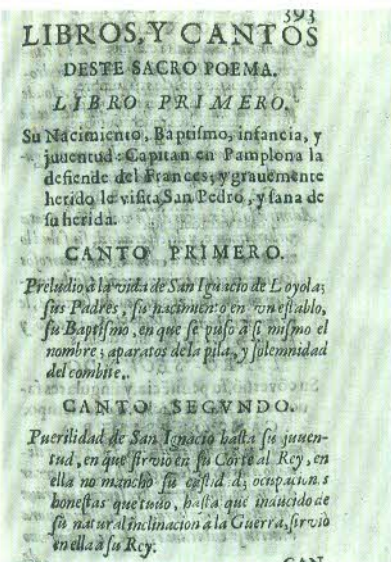 393
LIBROS, Y CANTOS
DESTE SACRO POEMA.
LIBRO PRIMERO.
Su Nacimiento, Baptismo, infancia, y
juuentud: Capitan en Pamplona la
defiende del Frances; y grauemente
herido le visita San Pedro, y sana de
su herida.
CANTO PRIMERO.
Preludio à la vida de San Ignacio de Loyola;
sus Padres, su nacimiento en vn establo,
su Baptismo, en que se puso à si mismo el
nombre; aparatos de la pila, y solemnidad
del combite.
CANTO SEGVNDO.
Puerilidad de San Ignacio hasta su juuen-
tud, en que siruiò en su Corte al Rey, en
ella no manchò su castid d; ocupacion s
honestas que tuuo, hasta que inducido de
su natural inclinacion a la Guerra, siruiò
en ella à su Rey.
CAN-